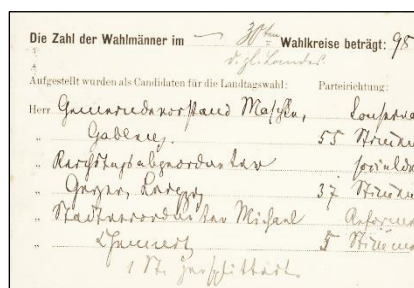 Die Zahl der Wahlmänner im 30ten Wahlkreise beträgt: 98
d. pl. Landes
Aufgestellt wurden als Candidaten für die Landtagswahl: Parteirichtung:
Herr Gemeindevorstand Maschke, Conserva
„ Gablenz. 55 Stimmen
„ Reichstagsabgeordneter sozialde
„ Geyer, Leipzig 37 Stimmen
„ Stadtverordneter Michael Reform
„ Chemnitz 5 Stimme
1 St. zersplittert